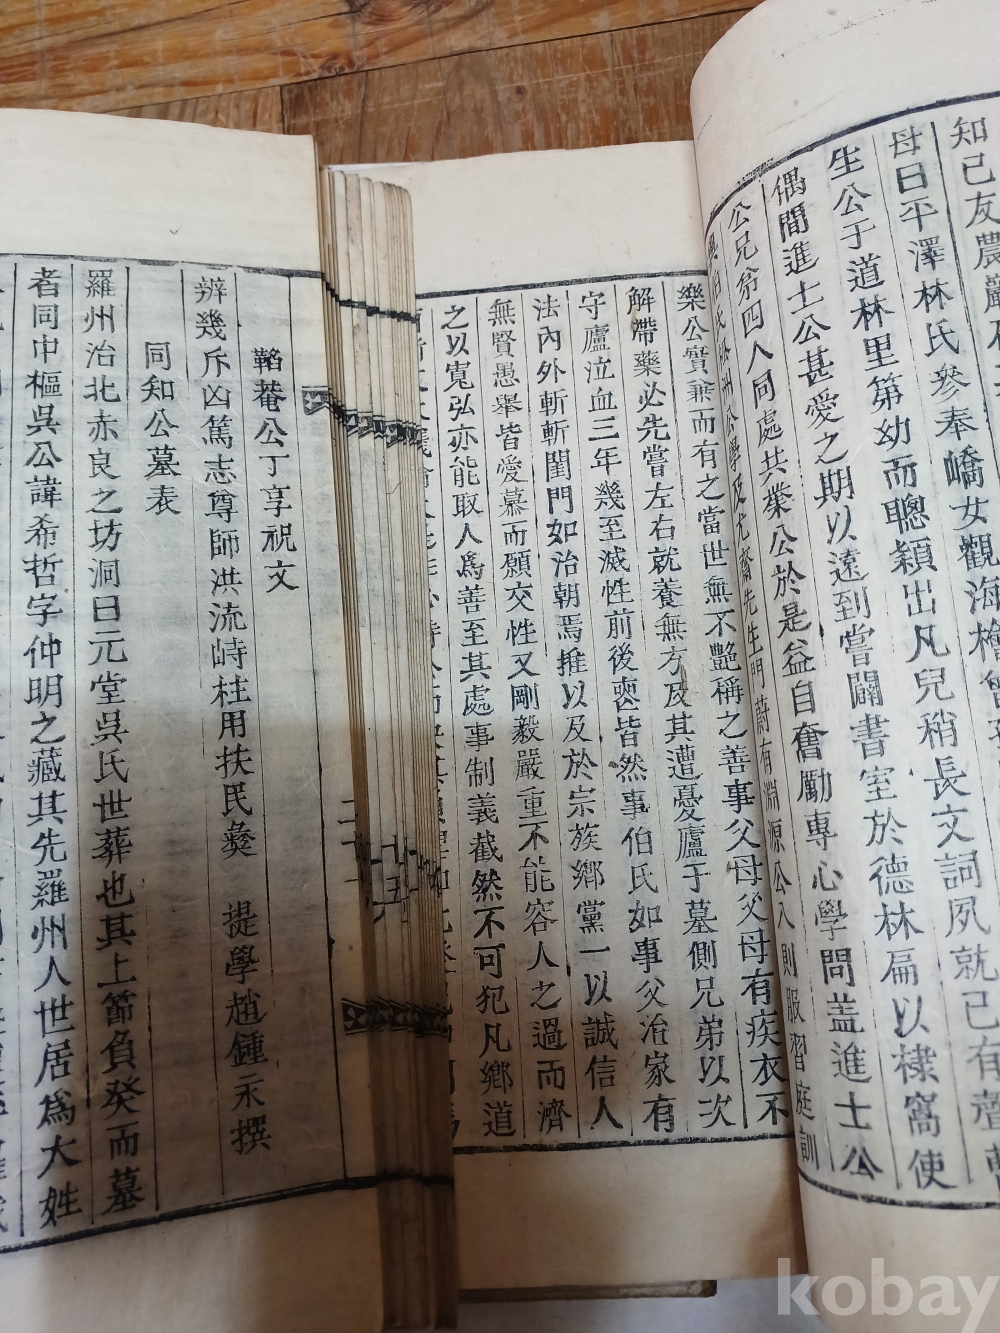 知己友農巖石
母曰平澤林氏參奉嶠女觀海檜
生公于道林里第幼而聰穎出凡兒稍長文詞夙就已有聲
偶間進士公甚愛之期以遠到嘗闢書室於德林扁以棣窩使
公兄弟四人同處共業公於是益自奮勵專心學問盖進士公
學及尤齋先生門蔚有淵源公入則服習庭訓
樂公實兼而有之當世無不艶稱之善事父母父母有疾衣不
解帶藥必先嘗左右就養無方及其遭憂廬于墓側兄弟以次
守廬泣血三年幾至滅性前後喪皆然事伯氏如事父治家有
法內外斬斬閨門如治朝焉推以及於宗族鄉黨一以誠信人
無賢愚擧皆愛慕而願交性又剛毅嚴重不能容人之過而濟
之以寬弘亦能取人爲善至其處事制義截然不可犯凡鄉道
鞱菴公丁享祝文
辨幾斥凶篤志尊師洪流峙柱用扶民彜 提學趙鍾永撰
同知公墓表
羅州治北赤良之坊洞曰元堂吳氏世葬也其上節負癸而墓
者同中樞吳公諱希哲字仲明之藏其先羅州人世居爲大姓
kobay